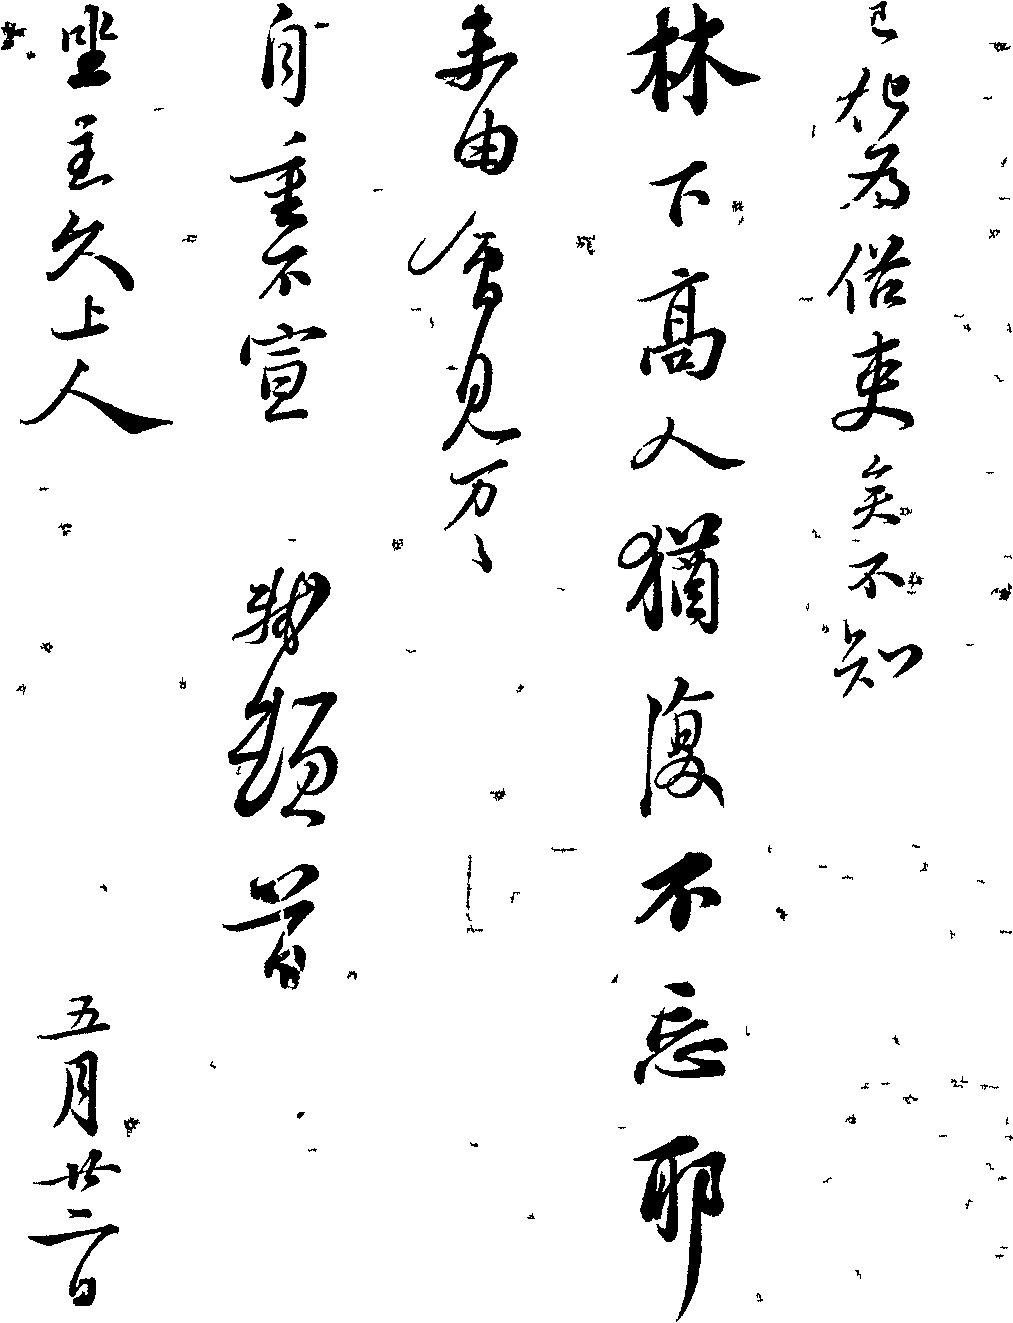 已化為俗吏矣不知
林下高人猶復不忘耶
未由會見万〻
自重不宣 軾頓首
坐主久上人 五月廿二日